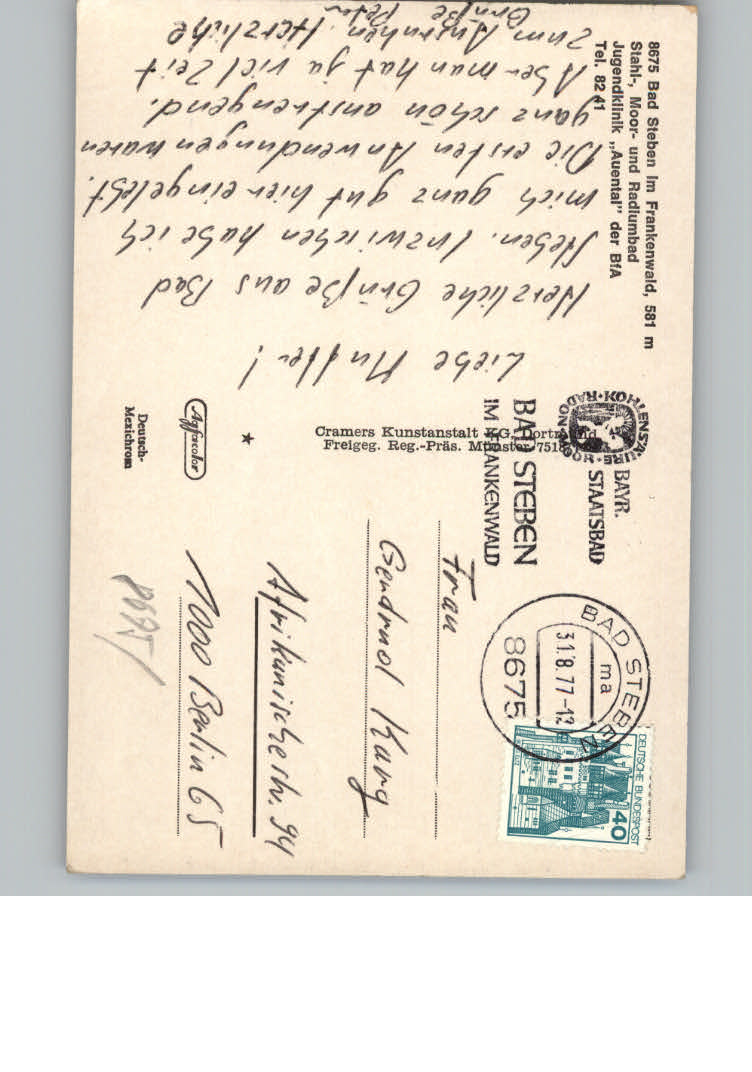 8675 Bad Steben im Frankenwald, 581 m
Stahl-, Moor- und Radiumbad
Jugendklinik „Auental" der BfA
Tel. 82 41
Liebe Mutter!
Herzliche Grüße aus Bad
Steben. Inzwischen habe ich
mich ganz gut hier eingelebt.
Die ersten Anwendungen waren
ganz schön anstrengend.
Aber man hat ja viel Zeit
zum Ausruhen. Herzliche
Grüße Peter
Cramers Kunstanstalt KG, Dortmund
Freigeg. Reg.-Präs. Münster 7518
Agfacolor
Deutsch-
Mexichrom
BAYR.
STAATSBAD
BAD STEBEN
IM FRANKENWALD
BAD STEBEN
ma
31.8.77-12
8675
DEUTSCHE BUNDESPOST
40
Frau
Gertrud Karg
Afrikanische str. 94
1000 Berlin 65
8675/